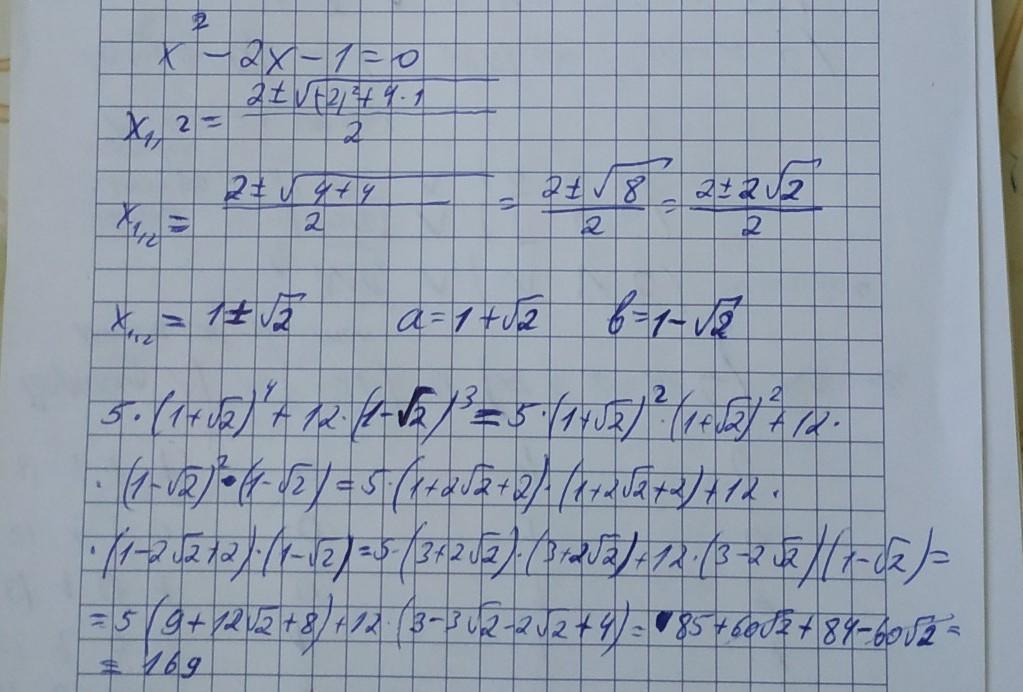 x² - 2x - 1 = 0
x₁,₂ = (2 ± √((-2)² + 4·1)) / 2
x₁,₂ = (2 ± √(4+4)) / 2 = (2 ± √8) / 2 = (2 ± 2√2) / 2
x₁,₂ = 1 ± √2 a = 1 + √2 b = 1 - √2
5·(1+√2)⁴ + 12·(1-√2)³ = 5·(1+√2)²·(1+√2)² + 12·
·(1-√2)²·(1-√2) = 5·(1+2√2+2)·(1+2√2+2) + 12·
·(1-2√2+2)·(1-√2) = 5·(3+2√2)·(3+2√2) + 12·(3-2√2)(1-√2) =
= 5(9+12√2+8) + 12·(3-3√2-2√2+4) = 85+60√2+84-60√2 =
= 169